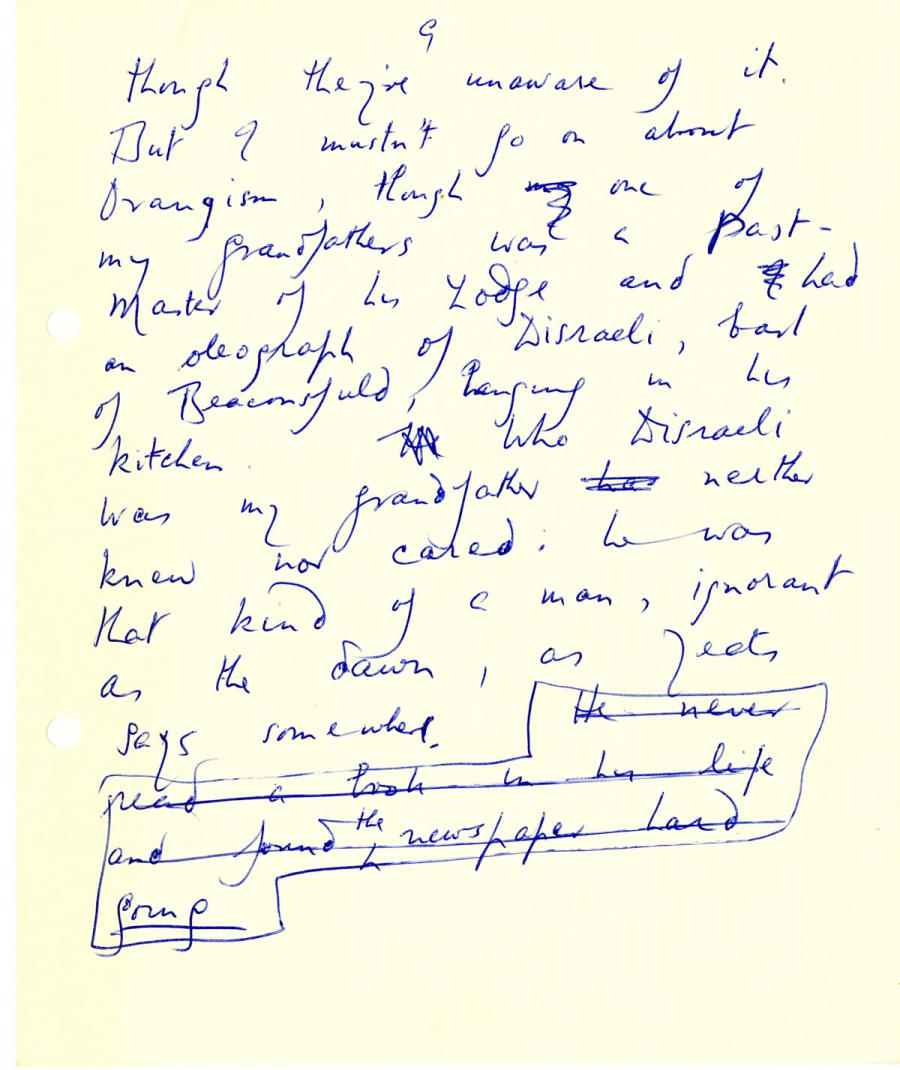 9
though they're unaware of it.
But I mustn't go on about
Orangism, though my one of
my grandfathers was a Past-
Master of his Lodge and had
an oleograph of Disraeli, Earl
of Beaconsfield, hanging in his
kitchen. Who Disraeli
was my grandfather has neither
knew nor cared: he was
that kind of a man, ignorant
as the dawn, as Yeats
says somewhere. He never
read a book in his life
and found the newspaper hard
going